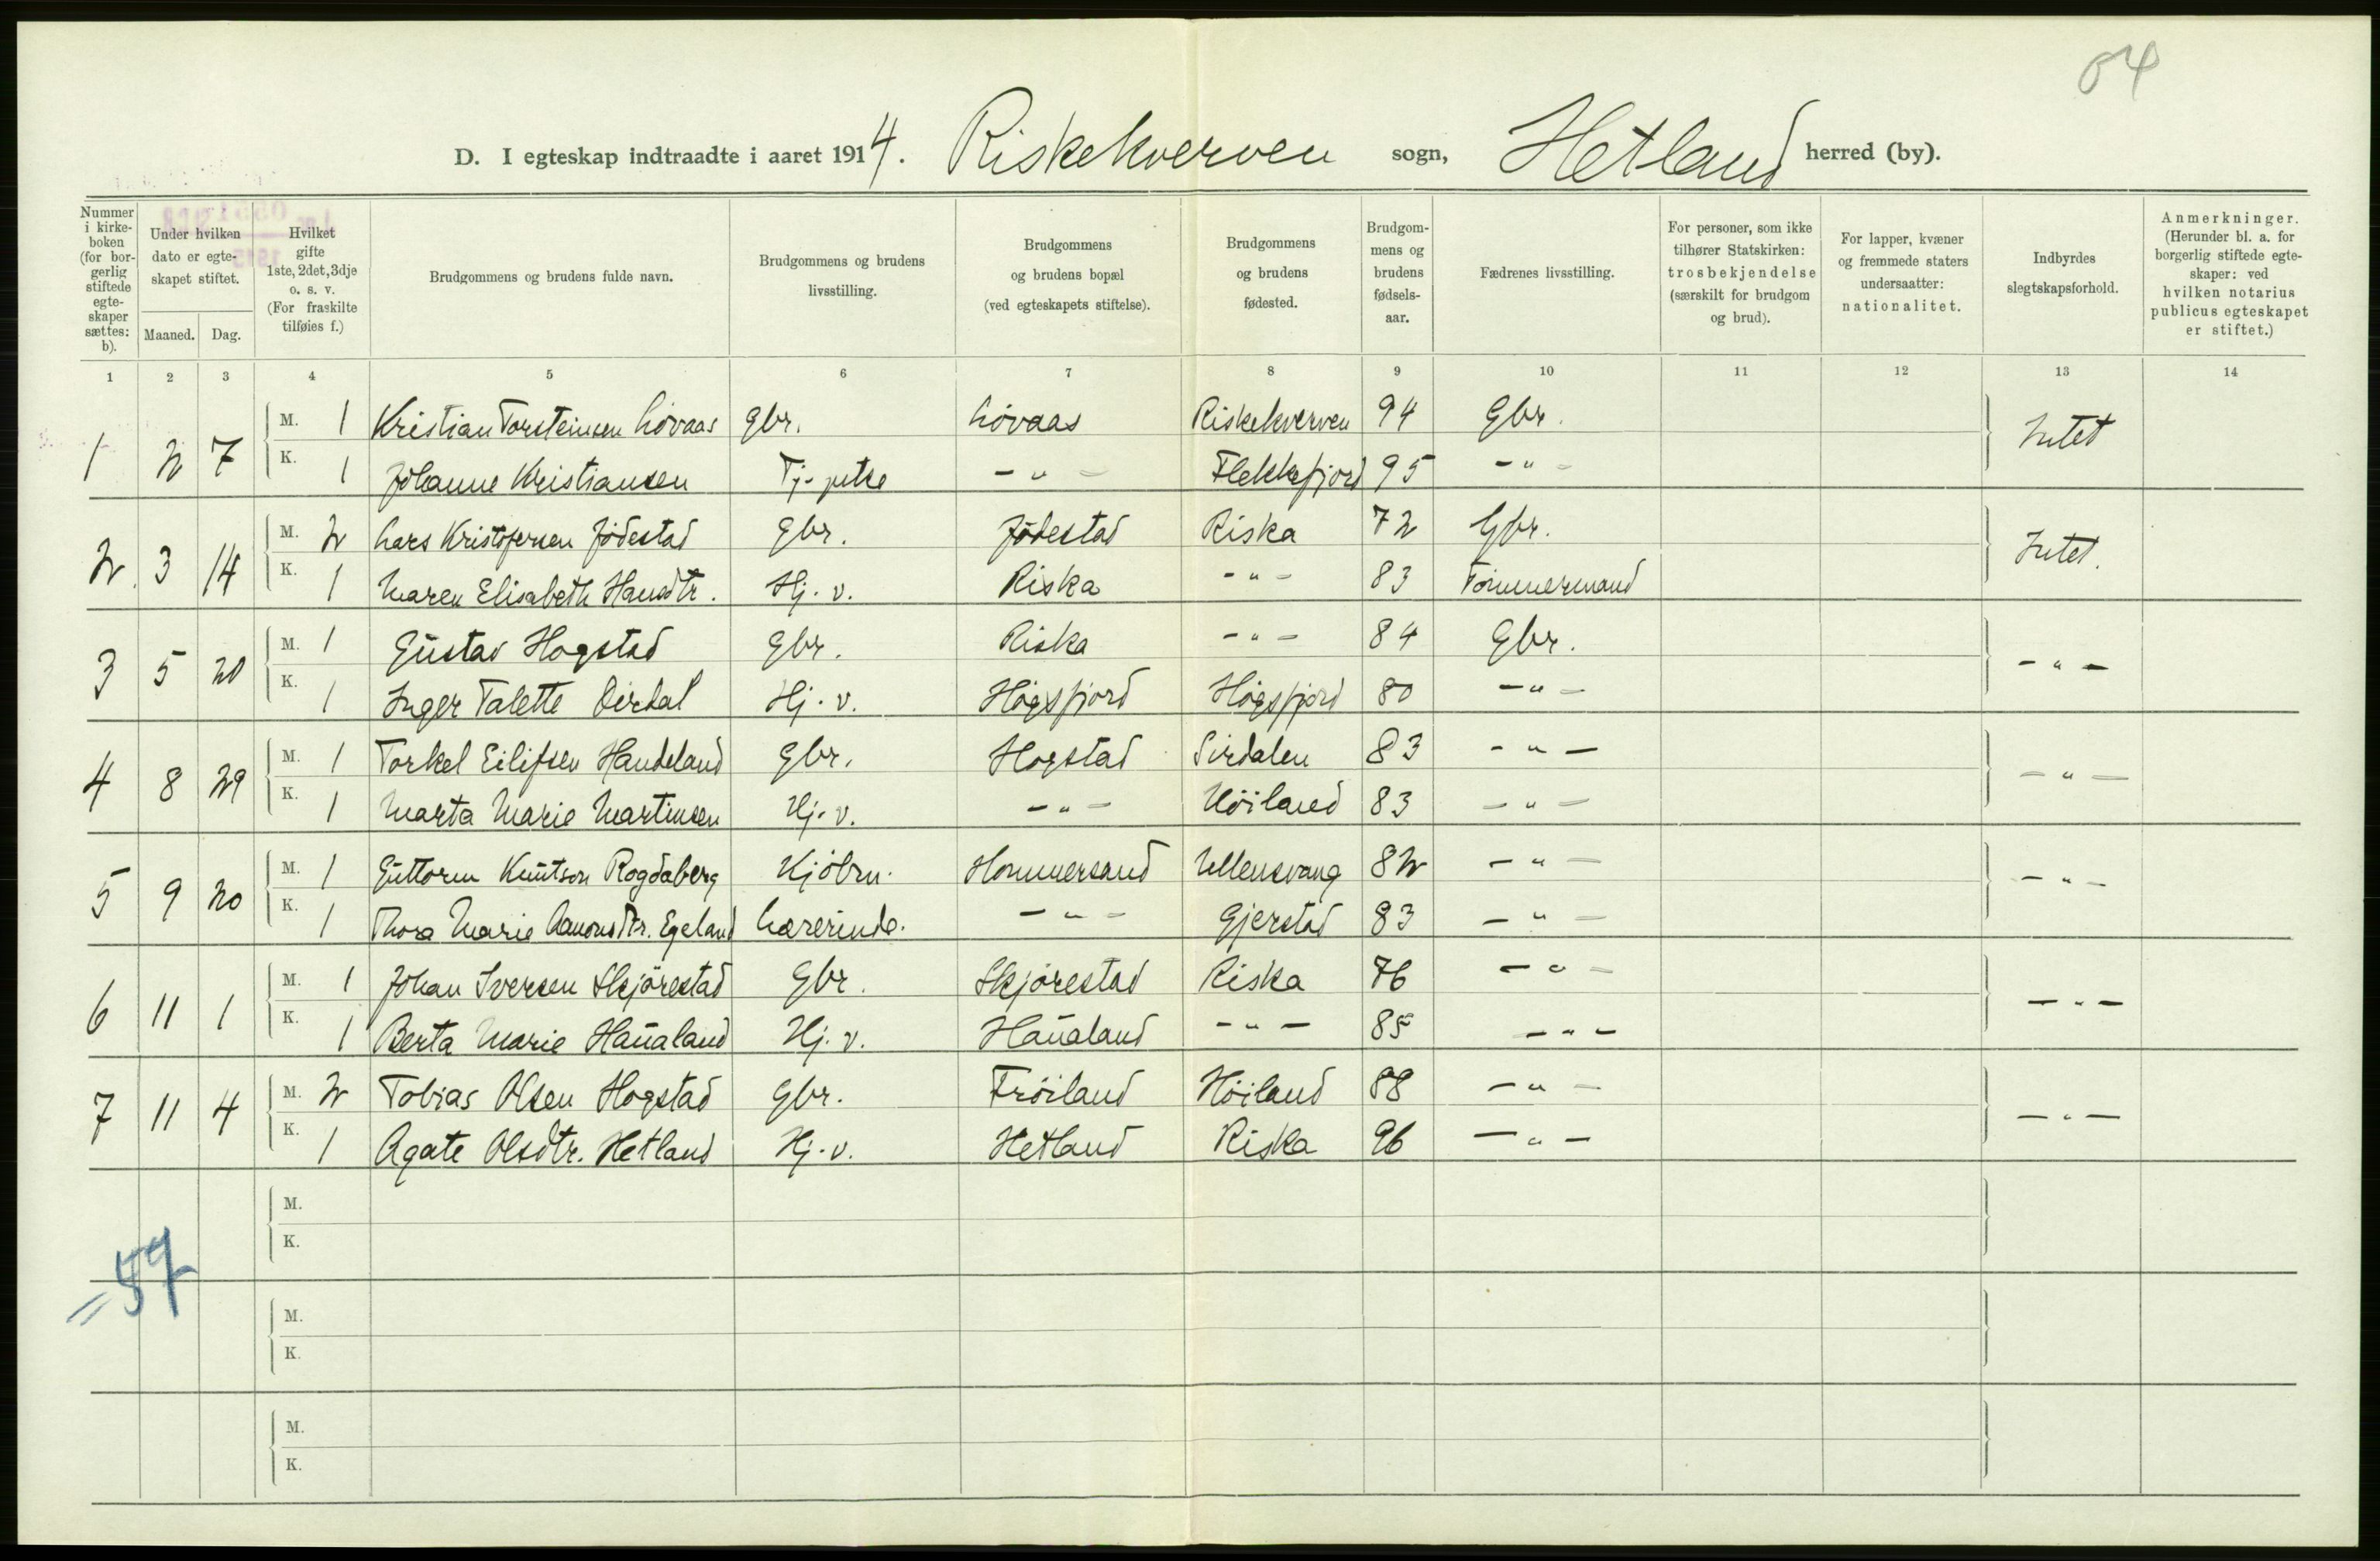 04
D. I egteskap indtraadte i aaret 1914. Riskekverven sogn, Hetland herred (by).
Nummer i kirke-boken (for bor-gerlig stiftede egte-skaper sættes: b).
Under hvilken dato er egte-skapet stiftet.
Maaned. Dag.
Hvilket gifte 1ste, 2det, 3dje o. s. v. (For fraskilte tilføies f.)
Brudgommens og brudens fulde navn.
Brudgommens og brudens livsstilling.
Brudgommens og brudens bopæl (ved egteskapets stiftelse).
Brudgommens og brudens fødested.
Brudgom-mens og brudens fødsels-aar.
Fædrenes livsstilling.
For personer, som ikke tilhører Statskirken: trosbekjendelse (særskilt for brudgom og brud).
For lapper, kvæner og fremmede staters undersaatter: nationalitet.
Indbyrdes slegtskapsforhold.
Anmerkninger. (Herunder bl. a. for borgerlig stiftede egte-skaper: ved hvilken notarius publicus egteskapet er stiftet.)
1 2 3 4 5 6 7 8 9 10 11 12 13 14
1 2 7 M. 1 Kristian Torsteinsen Lövaas Gbr. Lövaas Riskekverven 94 Gbr. Intet
K. 1 Johanne Kristiansen Tj-jente - " - Flekkefjord 95 - " -
2. 3 14 M. 2 Lars Kristofersen Jödestad Gbr. Jödestad Riska 72 Gbr. Intet.
K. 1 Maren Elisabeth Hansdtr. Hj. v. Riska - " - 83 Tömmermand
3 5 20 M. 1 Gustav Hogstad Gbr. Riska - " - 84 Gbr. - " -
K. 1 Inger Talette Dirdal Hj. v. Högsfjord Högsfjord 80 - " -
4 8 29 M. 1 Torkel Eilifsen Handeland Gbr. Hogstad Sirdalen 83 - " - - " -
K. 1 Marta Marie Martinsen Hj. v. - " - Höiland 83 - " -
5 9 20 M. 1 Guttorm Knutson Rogdaberg Kjöbm. Hommersand Ullensvang 82 - " - - " -
K. 1 Thora Marie Aamonsdtr. Egeland Lærerinde. - " - Gjerstad 83 - " -
6 11 1 M. 1 Johan Iversen Skjörestad Gbr. Skjörestad Riska 76 - " - - " -
K. 1 Berta Marie Haualand Hj. v. Haualand - " - 85 - " -
7 11 4 M. 2 Tobias Olsen Hogstad Gbr. Fröiland Höiland 88 - " - - " -
K. 1 Agate Olsdtr. Hetland Hj. v. Hetland Riska 96 - " -
M.
K.
= 57
M.
K.
M.
K.